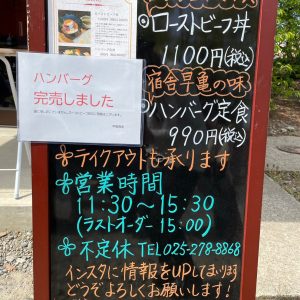 ◎ローストビーフ丼
1100円(税込)
宿舎早亀の味
◎ハンバーグ定食
990円(税込)
ハンバーグ
完売しました
テイクアウトも承ります
営業時間
11:30〜15:30
(ラストオーダー 15:00)
不定休 TEL025-278-8868
インスタに情報をUPしてまいります
どうぞよろしくお願いします!